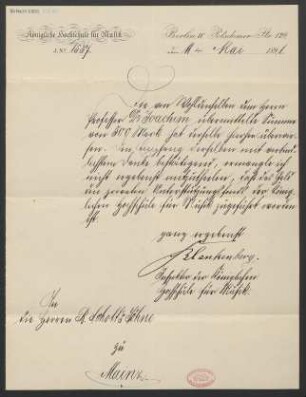 Königliche Hochschule für Musik
Berlin W. Potsdamer Str. 120.
J. № 1687.
d. 11 Mai 1891.
Die von Wohldenselben dem Herrn
Professor Dr Joachim übermittelte Summe
von 500 Mark hat derselbe hierher überwie-
sen. Den Empfang derselben mit verbind-
lichstem Danke bestätigend, ermangle ich
nicht ergebenst mitzutheilen, daß das Geld
dem privaten Unterstützungsfonds der König-
lichen Hochschule für Musik zugeführt worden
ist.
ganz ergebenst
Klankenberg.
Inspektor der Königlichen
Hochschule für Musik.
An
die Herren B. Schott's Söhne
zu
Mainz